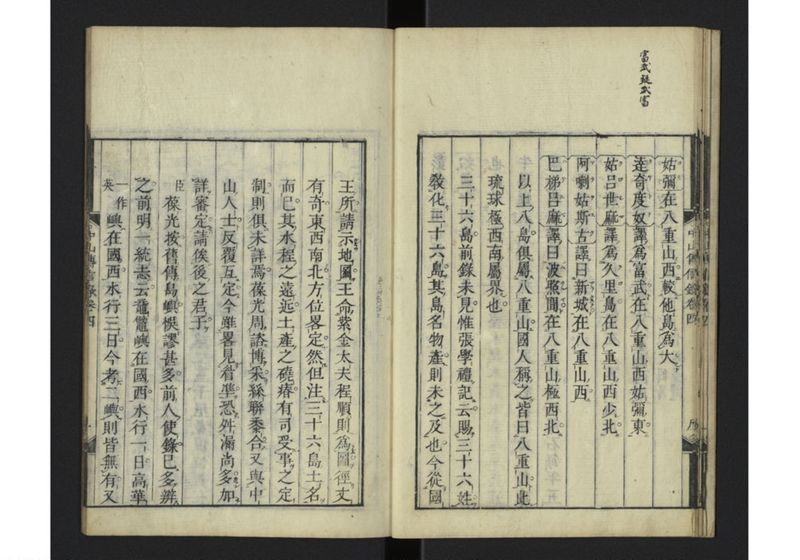 富武疑武富
姑彌在八重山西較他島爲大
達奇度奴譯爲富武在八重山西姑彌東
姑呂世麻譯爲久里島在八重山西少北
阿喇姑斯古譯曰新城在八重山西
巴梯呂麻譯曰波照間在八重山極西北
以上八島俱屬八重山國人稱之皆曰八重山此
琉球極西南屬界也
三十六島前錄未見惟張學禮記云賜三十六姓
敎化三十六島其島名物產則未之及也今從國
中山傳信錄卷四
王所請示地圖王命紫金大夫程順則爲圖徑丈
有奇東西南北方位畧定然但注三十六島土名
而已其水程之遠近土產之磽瘠有司受事之定
制則俱未詳焉葆光周諮博采絲聯黍合又與中
山人士反覆互定今雖畧見準恐舛漏尚多加
詳審定請俟後之君子
臣葆光按舊傳島嶼悞謬甚多前人使錄已多辨
之前明一統志云黿鼊嶼在國西水行一日高華
一作英嶼在國西水行三日今考二嶼則皆無有又
中山傳信錄卷四